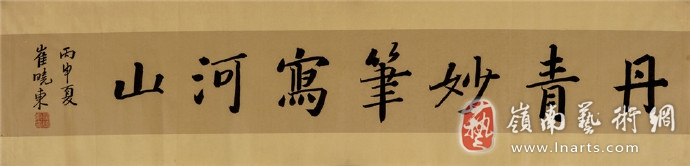 丹青妙筆寫河山
丙申夏
崔曉東
藝
嶺南藝術網
www.lnarts.com